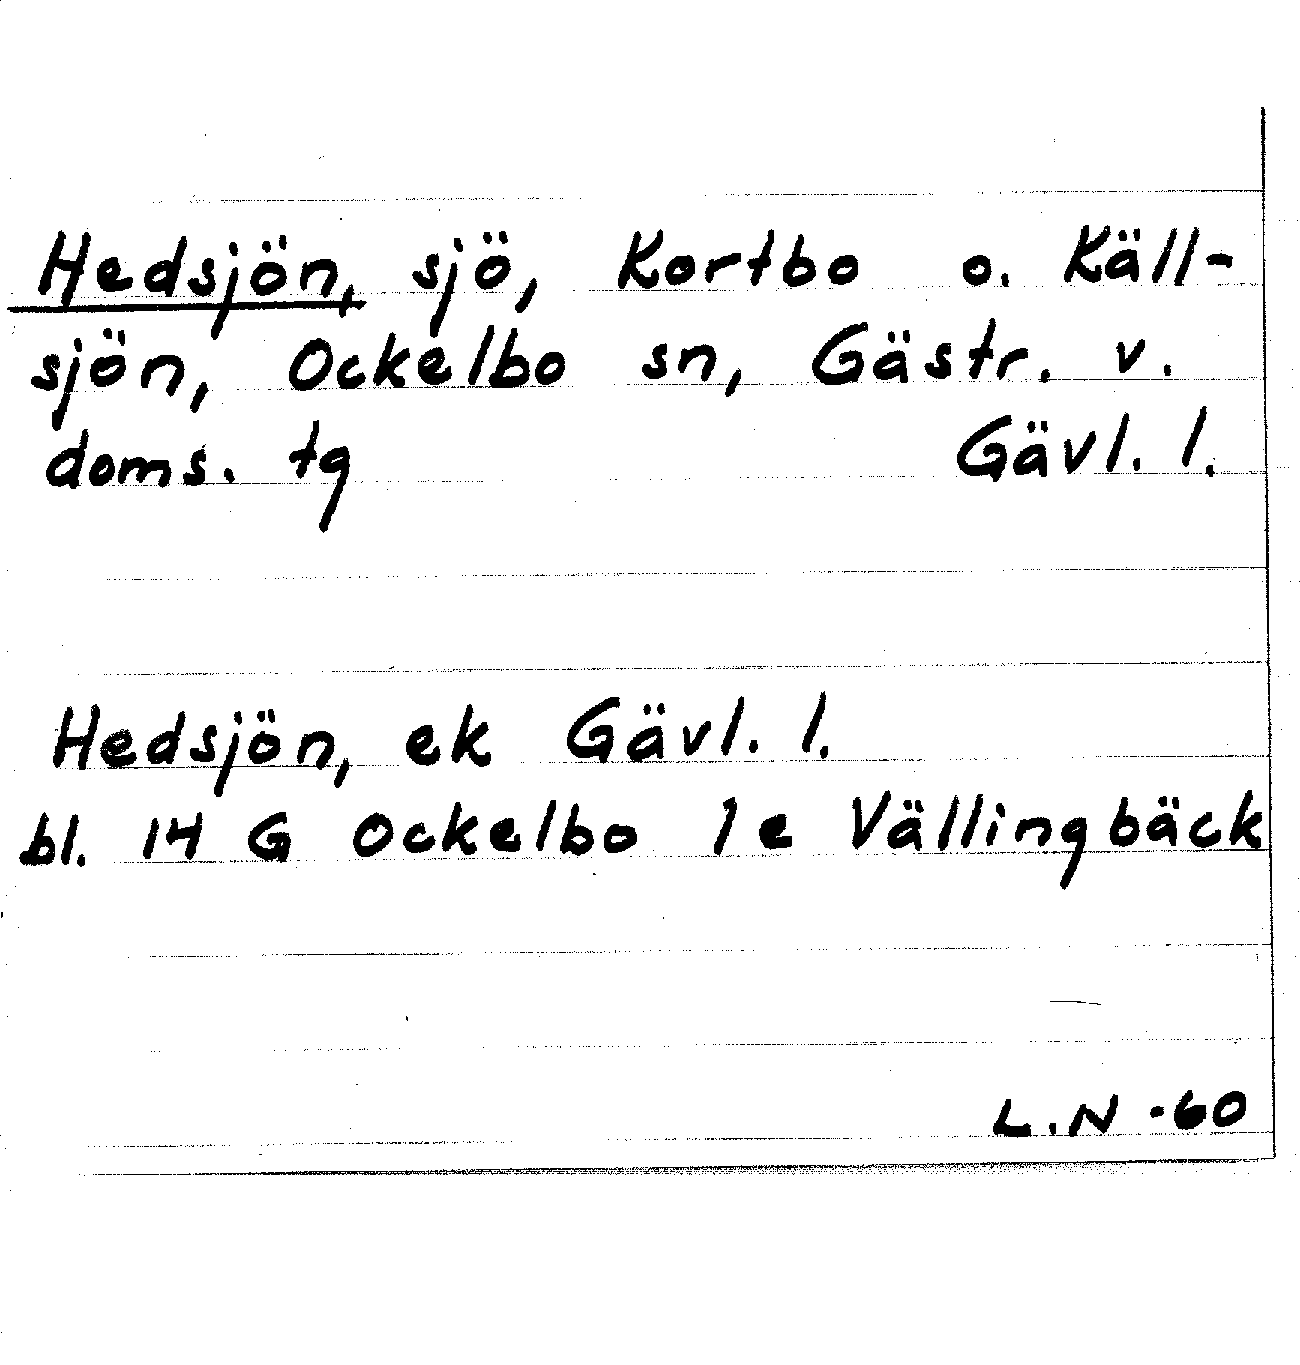 Hedsjön, sjö, Kortbo o. Käll-
sjön, Ockelbo sn, Gästr. v.
doms. tg Gävl. l.
Hedsjön, ek Gävl. l.
bl. 14 G Ockelbo 1e Vällingbäck
L.N -60